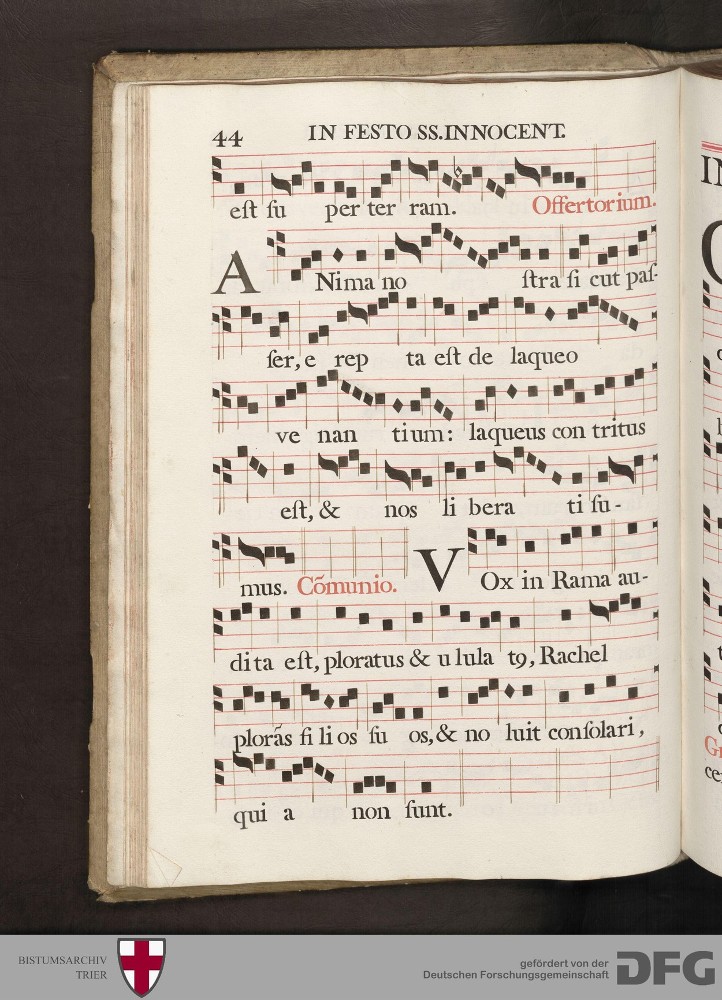 44 IN FESTO SS.INNOCENT.
eſt ſu per ter ram. Offertorium.
ANima no ſtra ſi cut paſ-
ſer, e rep ta eſt de laqueo
ve nan tium: laqueus con tritus
eſt, & nos li bera ti ſu-
mus. Cõmunio. VOx in Rama au-
dita eſt, ploratus & u lula tꝰ, Rachel
plorãs fi li os ſu os, & no luit conſolari,
qui a non ſunt.
BISTUMSARCHIV
TRIER
gefördert von der
Deutschen Forschungsgemeinschaft
DFG